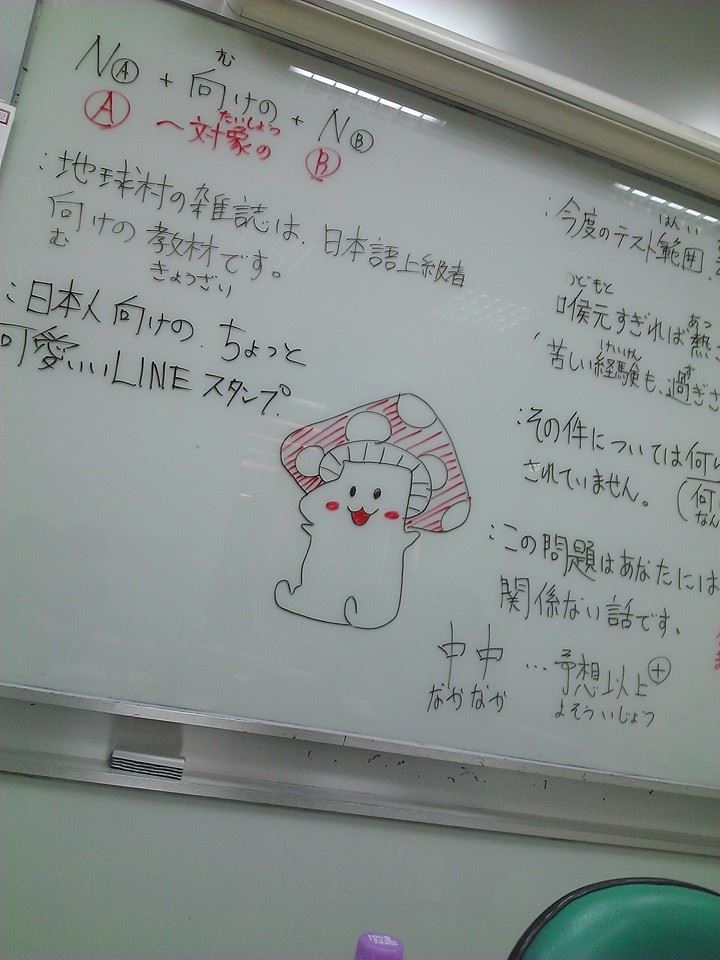 む
NⒶ + 向けの + NⒷ
たいしょう
Ⓐ ～対象の Ⓑ
:地球村の雑誌は、日本語上級者
向けの教材です。
む きょうざい
:日本人向けの、ちょっと
可愛いいLINEスタンプ。
はんい
:今度のテスト範囲、
のどもと あつ
喉元すぎれば熱
けいけん す
苦しい経験も、過ぎさ
:その件については何
されていません。(何
なん
:この問題はあなたには
関係ない話です。
中中 …予想以上⊕
なかなか よそういじょう